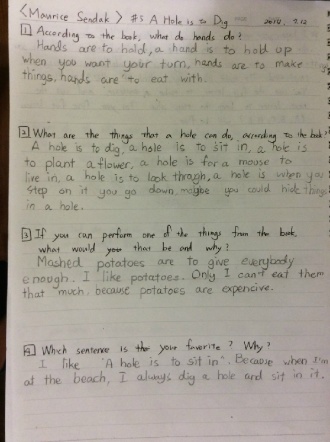 <Maurice Sendak> #3 A Hole is to Dig
7.12
1 According to the book, what do hands do?
Hands are to hold, a hand is to hold up
when you want your turn, hands are to make
things, hands are to eat with.
2 What are the things that a hole can do, according to the book?
A hole is to dig, a hole is to sit in, a hole is
to plant a flower, a hole is for a mouse to
live in, a hole is to look through, a hole is when you
step on it you go down, maybe you could hide things
in a hole.
3 If you can perform one of the things from the book,
what would you that be and why?
Mashed potatoes are to give everybody
enough. I like potatoes. Only I can't eat them
that much, because potatoes are expencive.
4 Which sentence is the your favorite? Why?
I like "A hole is to sit in". Because when I'm
at the beach, I always dig a hole and sit in it.